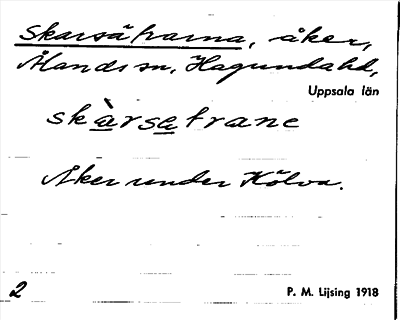 Skarsätrarna, åker,
Ålands sn, Hagunda hd,
Uppsala län
skàrsatrane
Åker under Kölva.
2
P. M. Lijsing 1918